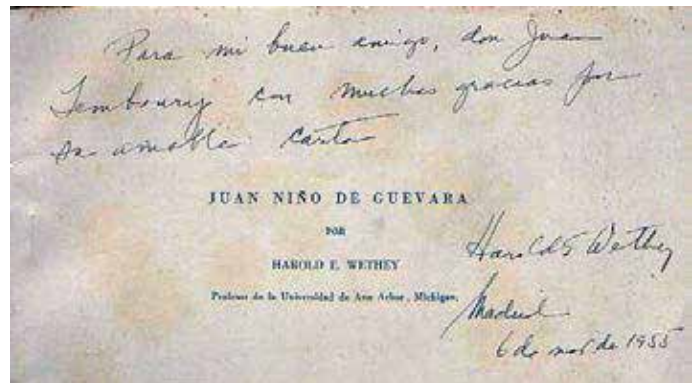 Para mi buen amigo, don Juan
Temboury con muchas gracias por
su amable carta
JUAN NIÑO DE GUEVARA
POR
HAROLD E. WETHEY
Profesor de la Universidad de Ann Arbor, Michigan.
Harold E Wethey
Madrid
6 de nov de 1955